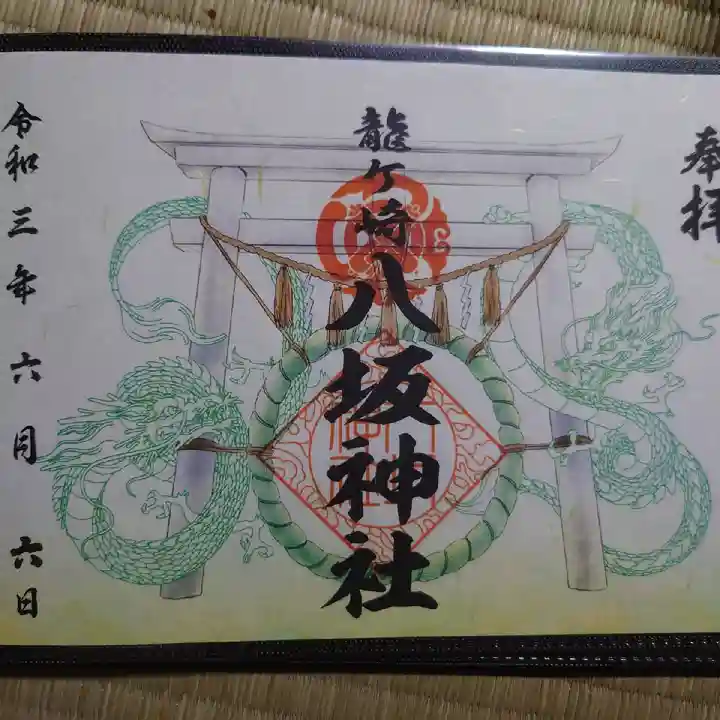 奉拝
龍ケ崎八坂神社
令和三年 六月 六日